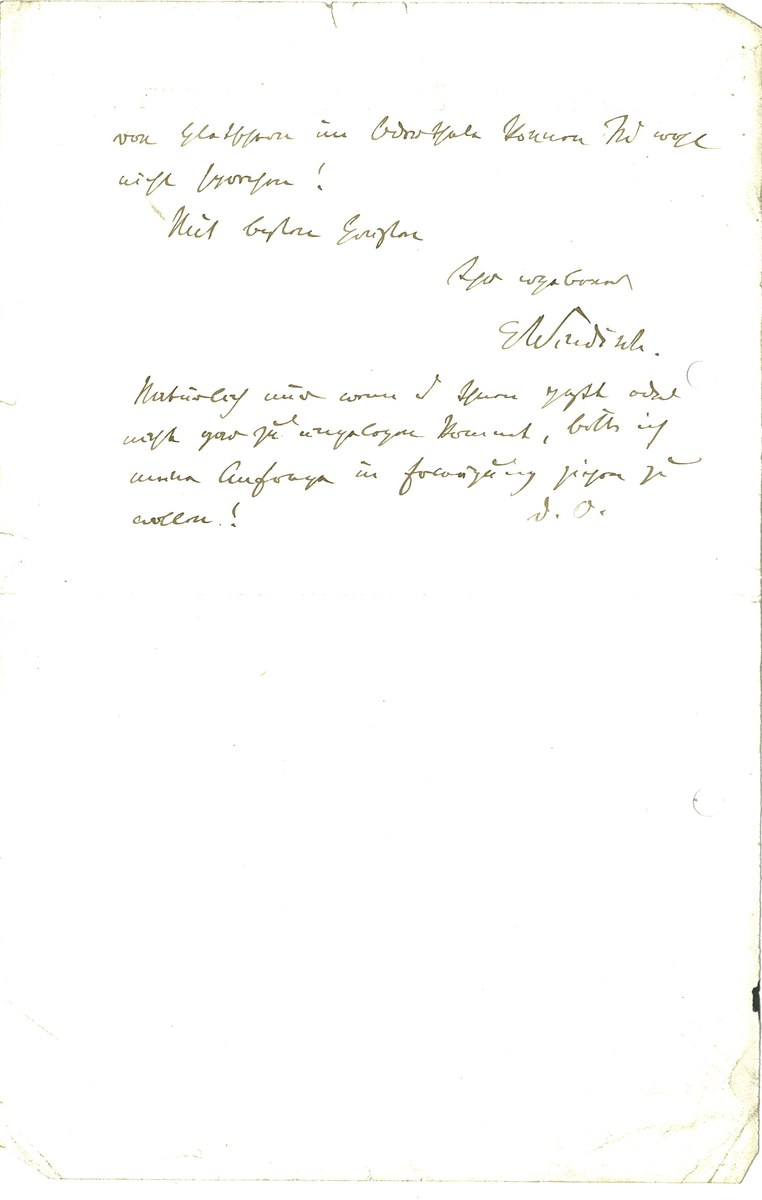 von Gletschern im Oderthale können Sie wohl
nicht sprechen!
Mit besten Grüßen
Ihr ergebener
EWindisch.
Natürlich nur wenn es Ihnen paßt oder
nicht gar zu ungelegen kommt, bitte ich
meine Anfrage in Erwägung ziehen zu
wollen! d. O.